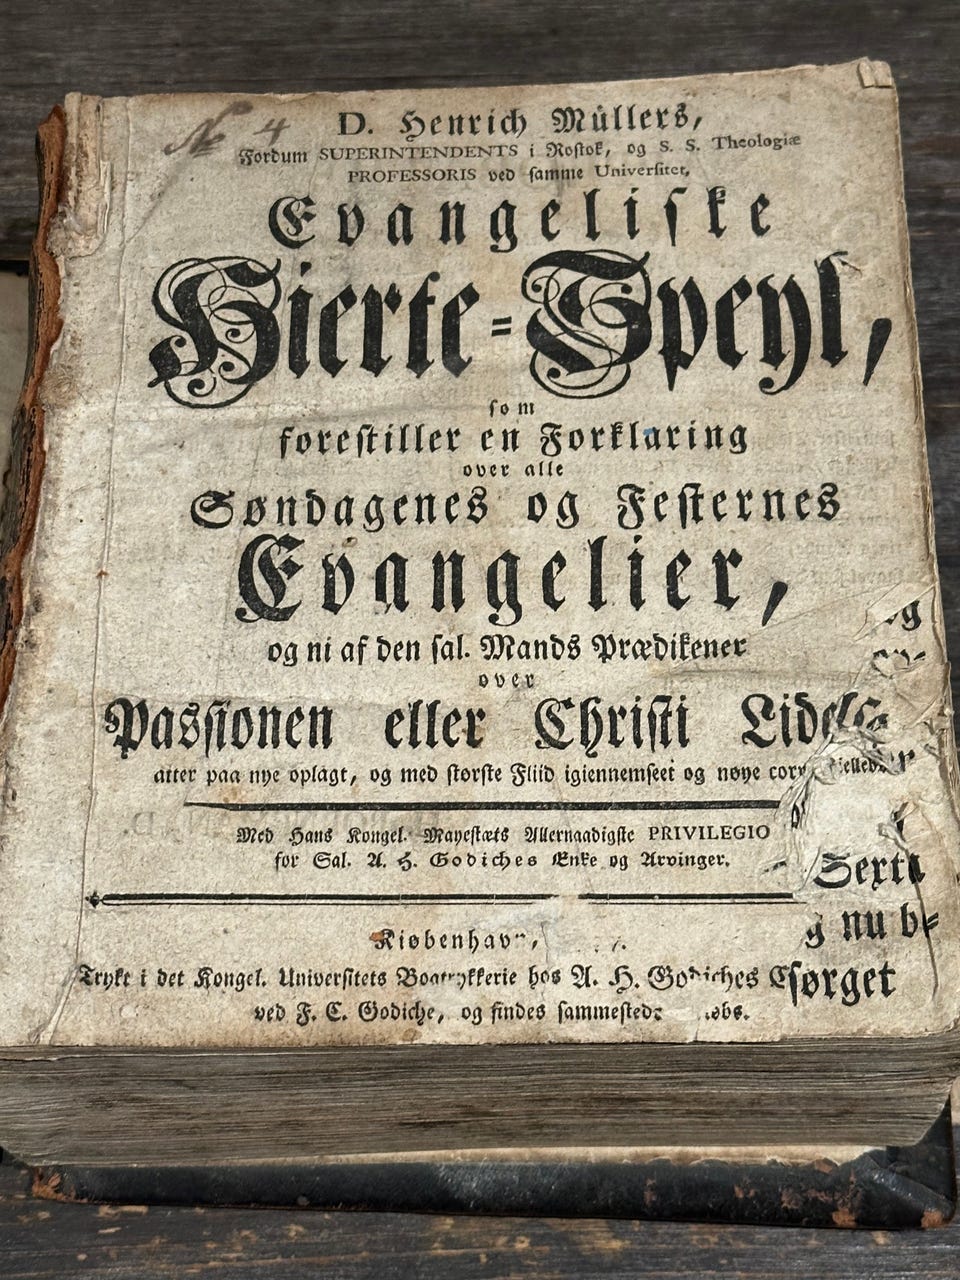 No 4
D. Henrich Müllers,
Fordum SUPERINTENDENTS i Rostok, og S. S. Theologiæ
PROFESSORIS ved samme Universitet,
Evangeliske
Hierte-Speyl,
som
forestiller en Forklaring
over alle
Søndagenes og Festernes
Evangelier,
og ni af den sal. Mands Prædikener
over
Passionen eller Christi
atter paa nye oplagt, og med største Fliid igiennemseet og nøye
Med Hans Kongel. Mayestæts Allernaadigste PRIVILEGIO
for Sal. A. H. Godiches Enke og Arvinger.
Sexta
nu be-
Trykt i det Kongel. Universitets hos A. H. Godiches
sørget
ved F. C. Godiche, og findes